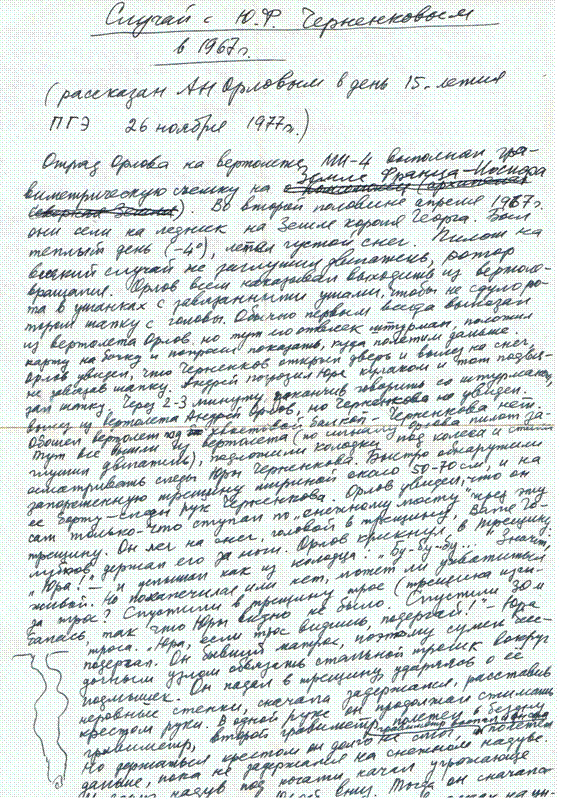 Случай с Ю.Ф. Черненковым
в 1967г.
(рассказан АН Орловым в день 15-летия
ПГЭ 26 ноября 1977г.)
Отряд Орлова на вертолете МИ-4 выполнял гра-
виметрическую съемку на Земле Франца-Иосифа
. Во второй половине апреля 1967г.
они сели на ледник на Земле короля Георга. Был
теплый день (-4°), летел густой снег. Пилот на
всякий случай не заглушил двигатель, ротор
вращался. Орлов всем наказывал выходить из вертоле-
та в ушанках с завязанными ушами, чтобы не сдуло ро-
тором шапку с головы. Обычно первым всегда вылезал
из вертолета Орлов, но тут его отвлек штурман, положил
карту на бочку и попросил показать, куда полетим дальше.
Орлов увидел, что Черненков открыл дверь и вылез на снег,
не завязав шапку. Андрей погрозил Юре кулаком и тот подвя-
зал шапку. Через 2-3 минуты, закончив говорить со штурманом,
вылез из вертолета Андрей Орлов, но Черненкова не увидел.
Обошел вертолет под хвостовой балкой - Черненкова нет.
Тут все вышли из вертолета (по сигналу Орлова пилот за-
глушил двигатель), подложили колодки под колеса и стали
осматривать следы Юры Черненкова. Быстро обнаружили
запорошенную трещину шириной около 50-70 см, и на
ее борту - следы рук Черненкова. Орлов увидел, что он
сам только-что ступал по "снежному мосту" через эту
трещину. Он лег на снег, головой в трещину, Ваня Го-
лубков держал его за ноги. Орлов крикнул в трещину:
"Юра!" - и услышал как из колодца: "бу-бу-бу..." Значит,
живой. Но покалечился или нет, может ли ухватиться
за трос? Спустили в трещину трос (трещина изги-
балась, так что Юры видно не было. Спустили 30 м
троса. "Юра, если трос видишь, подергай!" - Юра
подергал. Он бывший матрос, поэтому сумел
узлом обвязать стальной тросик вокруг
подмышек. Он падал в трещину ударяясь о её
неровные стенки, сначала задержался, расставив
крестом руки. В одной руке он продолжал сжимать
гравиметр, второй гравиметр полетел в бездну
Но держаться крестом он долго не смог, и полетел
дальше, пока не задержался на снежном надуве.
надув под ногами начал угрожающе
вниз. Тогда он сначала